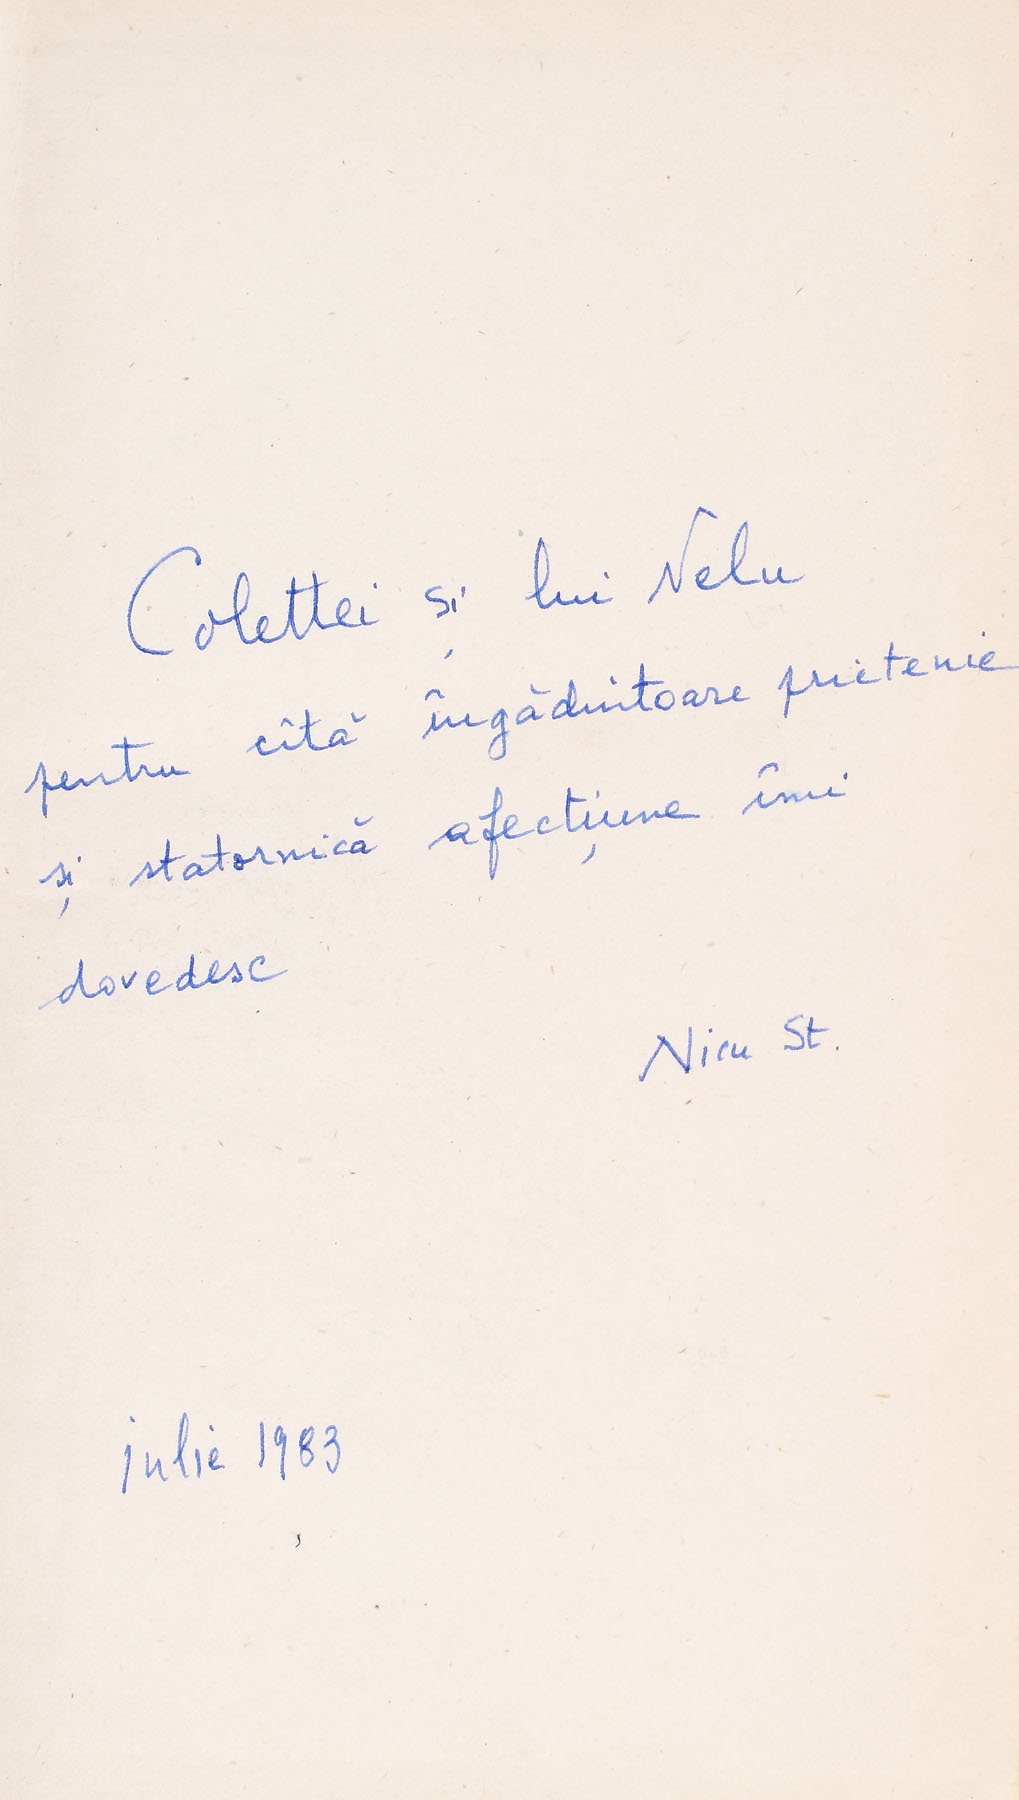 Colettei și lui Nelu
pentru cîtă îngăduitoare prietenie
și statornică afecțiune îmi
dovedesc
Nicu St.
iulie 1983